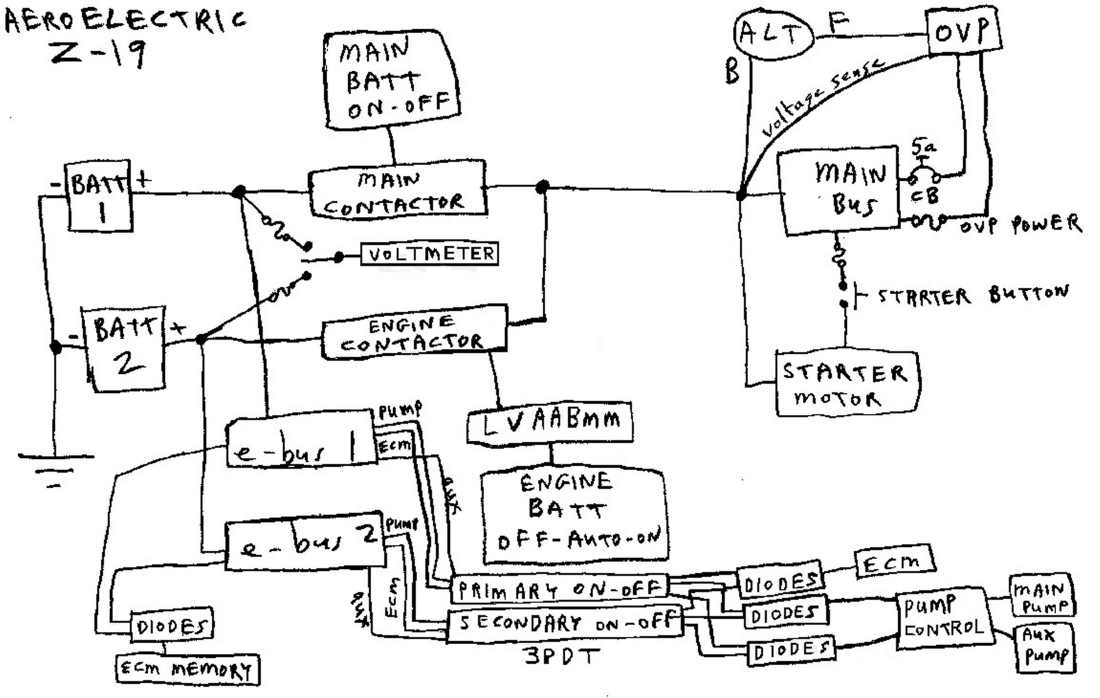 AEROELECTRIC
Z-19
MAIN
BATT
ON-OFF
ALT
F
OVP
B
voltage sense
- BATT +
1
MAIN
CONTACTOR
MAIN
BUS
5a
CB
OVP POWER
VOLTMETER
STARTER BUTTON
- BATT +
2
ENGINE
CONTACTOR
STARTER
MOTOR
LVAABmm
e-bus 1
PUMP
ECM
aux
ENGINE
BATT
OFF-AUTO-ON
e-bus 2
PUMP
ECM
aux
PRIMARY ON-OFF
SECONDARY ON-OFF
3PDT
DIODES
ECM
DIODES
DIODES
PUMP
CONTROL
MAIN
PUMP
AUX
PUMP
DIODES
ECM MEMORY